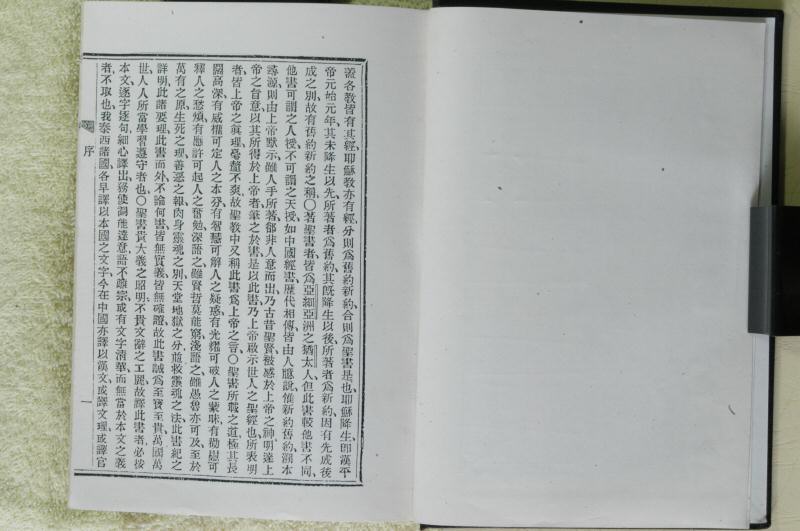 蓋各教皆有其經、耶穌教亦有經、分則爲舊約新約、合則爲聖書是也、耶穌降生、卽漢平
帝元始元年、其未降生以先所著者爲舊約、其旣降生以後所著者爲新約、因有先成後
成之別、故有舊約新約之稱、〇著聖書者、皆爲亞細亞洲之猶太人、但此書較他書不同、
他書可謂之人授、不可謂之天授、如中國經書、歷代相傳、皆由人臆說、惟新約舊約、溯本
尋源、則由上帝默示、雖人手所著、都非人意而出、乃古昔聖賢、被感於上帝之神、明達上
帝之旨意、以其所得於上帝者、筆之於書、是以此書乃上帝啟示世人之聖經也、所表明
者、皆上帝之眞理、毫釐不爽、故聖教中又稱此書爲上帝之言、〇聖書所載之道、極其長
闊高深、有威權可定人之本分、有智慧可解人之疑惑、有光耀可破人之蒙昧、有勸慰可
釋人之愁煩、有應許可起人之奮勉、深語之、雖賢哲莫能窮、淺語之、雖愚魯亦可及、至於
萬有之原、生死之理、善惡之報、肉身靈魂之別、天堂地獄之分、並救靈魂之法、此書紀之
詳明、此諸要理、此書而外、不論何書、皆無實義、皆無確證、故此書誠爲至寶至貴、萬國萬
世人人所當學習遵守者也、〇聖書貴大義之昭明、不貴文辭之工麗、故譯此書者、必按
本文逐字逐句、細心譯出、務使詞能達意、語不離宗、或有文字清華、而無當於本文之義
者、不取也、我泰西諸國、各早譯以本國之文字、今在中國、亦譯以漢文、或譯文理、或譯官
序
一